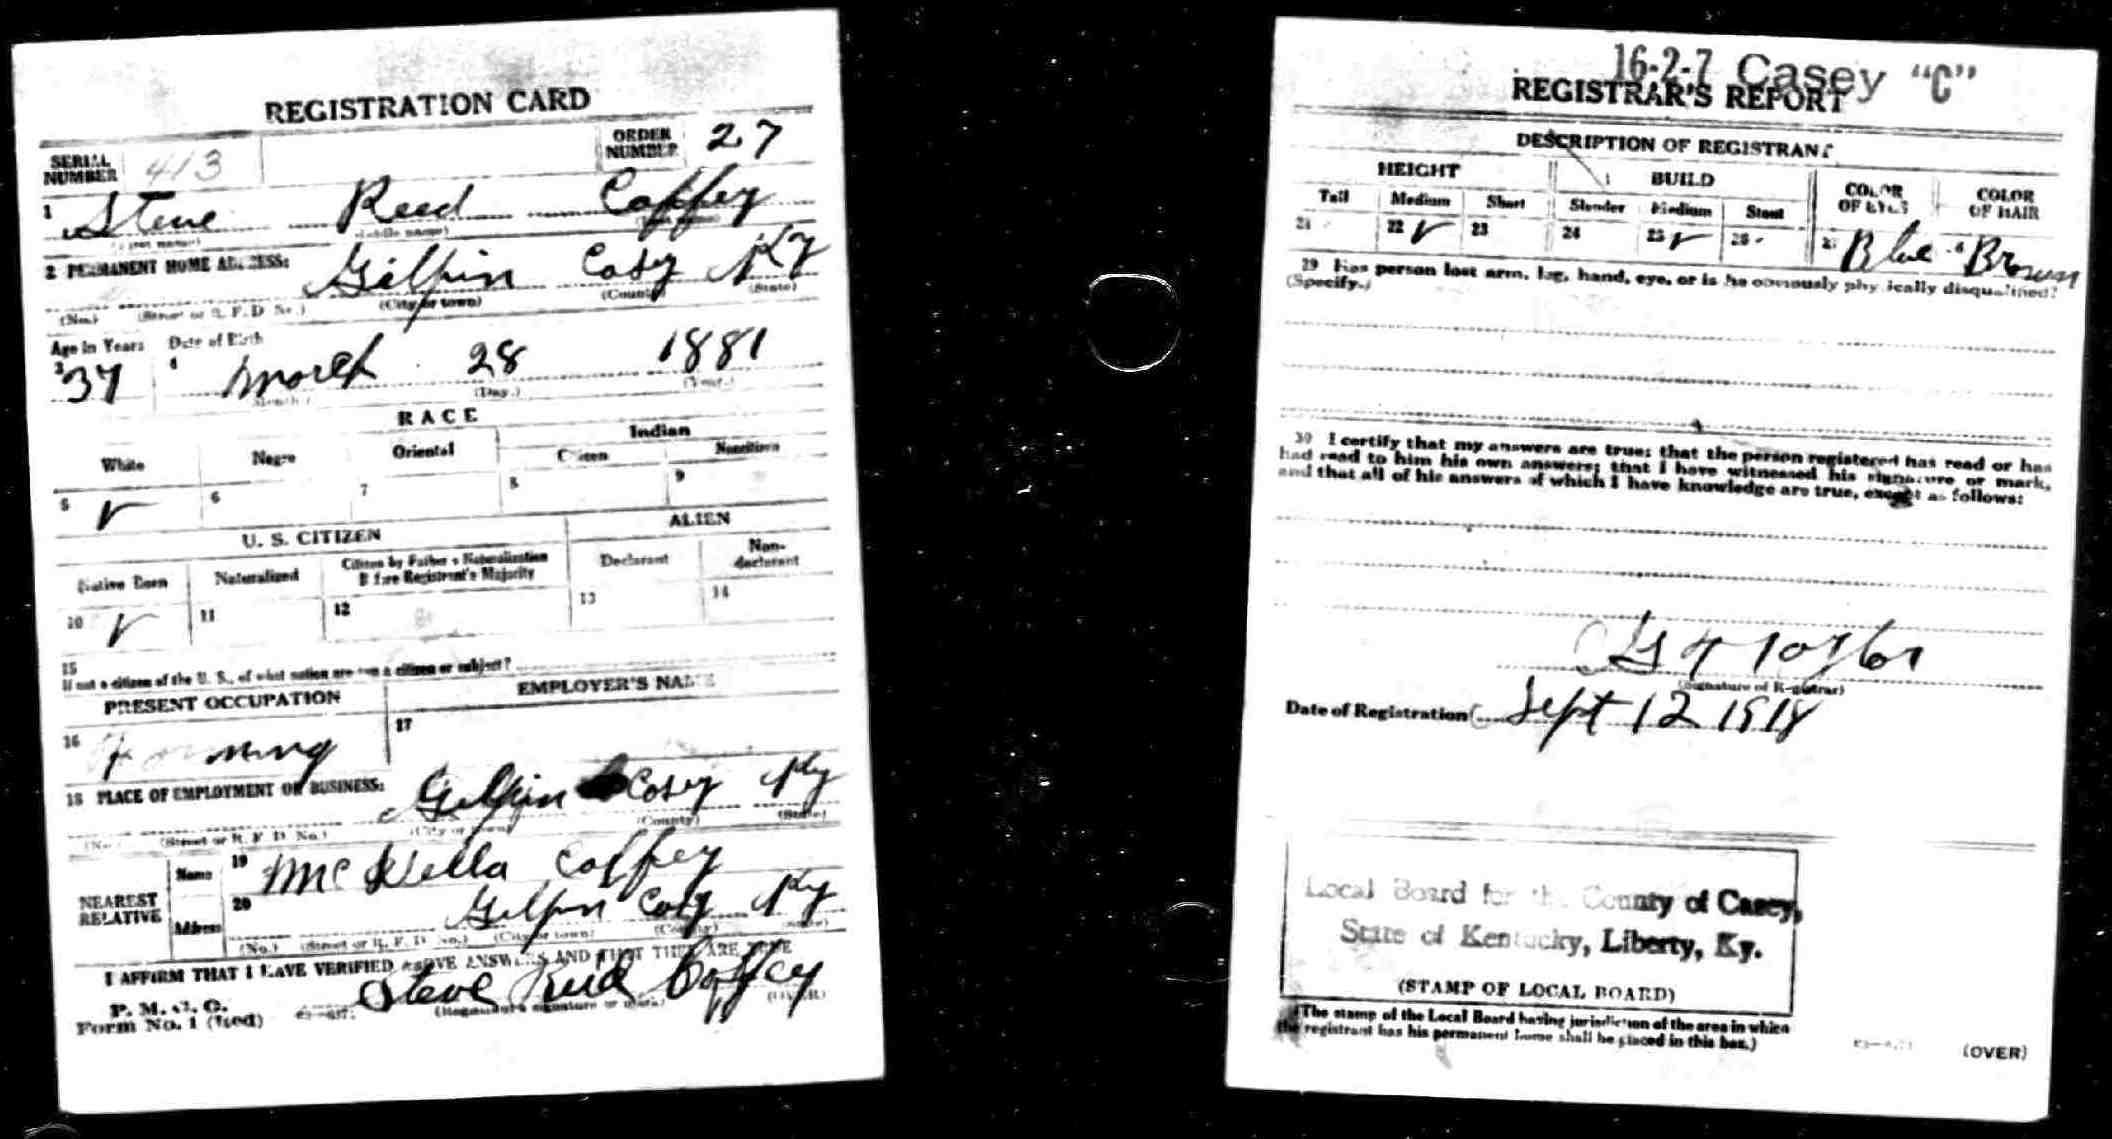 REGISTRATION CARD
SERIAL NUMBER 413 ORDER NUMBER 27
1 Steve Reed Coffey
(First name) (Middle name)
2 PERMANENT HOME ADDRESS: Gilpin Casy Ky
(No.) (Street or R. F. D. No.) (City or town) (County) (State)
Age in Years Date of Birth
3 37 4 March 28 1881
(Month) (Day.) (Year.)
RACE
White Negro Oriental Indian
Citizen Noncitizen
5 ✓ 6 7 8 9
U. S. CITIZEN ALIEN
Native Born Naturalized Citizen by Father's Naturalization Before Registrant's Majority Declarant Non-declarant
10 ✓ 11 12 13 14
15
If not a citizen of the U. S., of what nation are you a citizen or subject?
PRESENT OCCUPATION EMPLOYER'S NAME
16 Farming 17
18 PLACE OF EMPLOYMENT OR BUSINESS: Gilpin Casy Ky
(No.) (Street or R. F. D. No.) (City or town) (County) (State)
NEAREST RELATIVE Name 19 Mc Della Coffey
Address 20 Gilpin Casy Ky
(No.) (Street or R. F. D. No.) (City or town) (County) (State)
I AFFIRM THAT I HAVE VERIFIED ABOVE ANSWERS AND THAT THEY ARE TRUE
P. M. G. O.
Form No. 1 (Red) Steve Reid Coffey
(Registrant's signature or mark) (OVER)
16-2-7 Casey "C"
REGISTRAR'S REPORT
DESCRIPTION OF REGISTRANT
HEIGHT BUILD COLOR OF EYES COLOR OF HAIR
Tall Medium Short Slender Medium Stout
21 22 ✓ 23 24 25 ✓ 26 27 Blue 28 Brown
29 Has person lost arm, leg, hand, eye, or is he obviously physically disqualified?
(Specify.)
30 I certify that my answers are true; that the person registered has read or has
had read to him his own answers; that I have witnessed his signature or mark,
and that all of his answers of which I have knowledge are true, except as follows:
Taylor
(Signature of Registrar)
Date of Registration Sept 12 1918
Local Board for the County of Casey,
State of Kentucky, Liberty, Ky.
(STAMP OF LOCAL BOARD)
(The stamp of the Local Board having jurisdiction of the area in which
the registrant has his permanent home shall be placed in this box.)
(OVER)